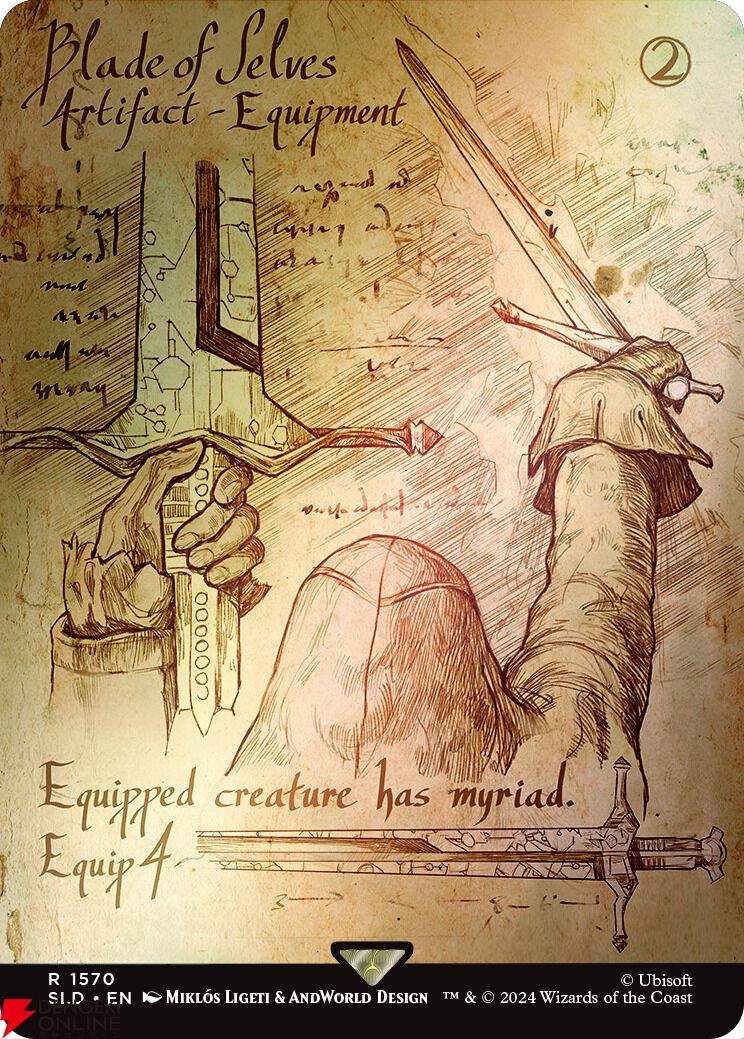 Blade of Selves
2
Artifact - Equipment
Equipped creature has myriad.
Equip 4
R 1570
SLD • EN Miklós Ligeti & AndWorld Design
© Ubisoft
™ & © 2024 Wizards of the Coast
DENGEKI
ONLINE